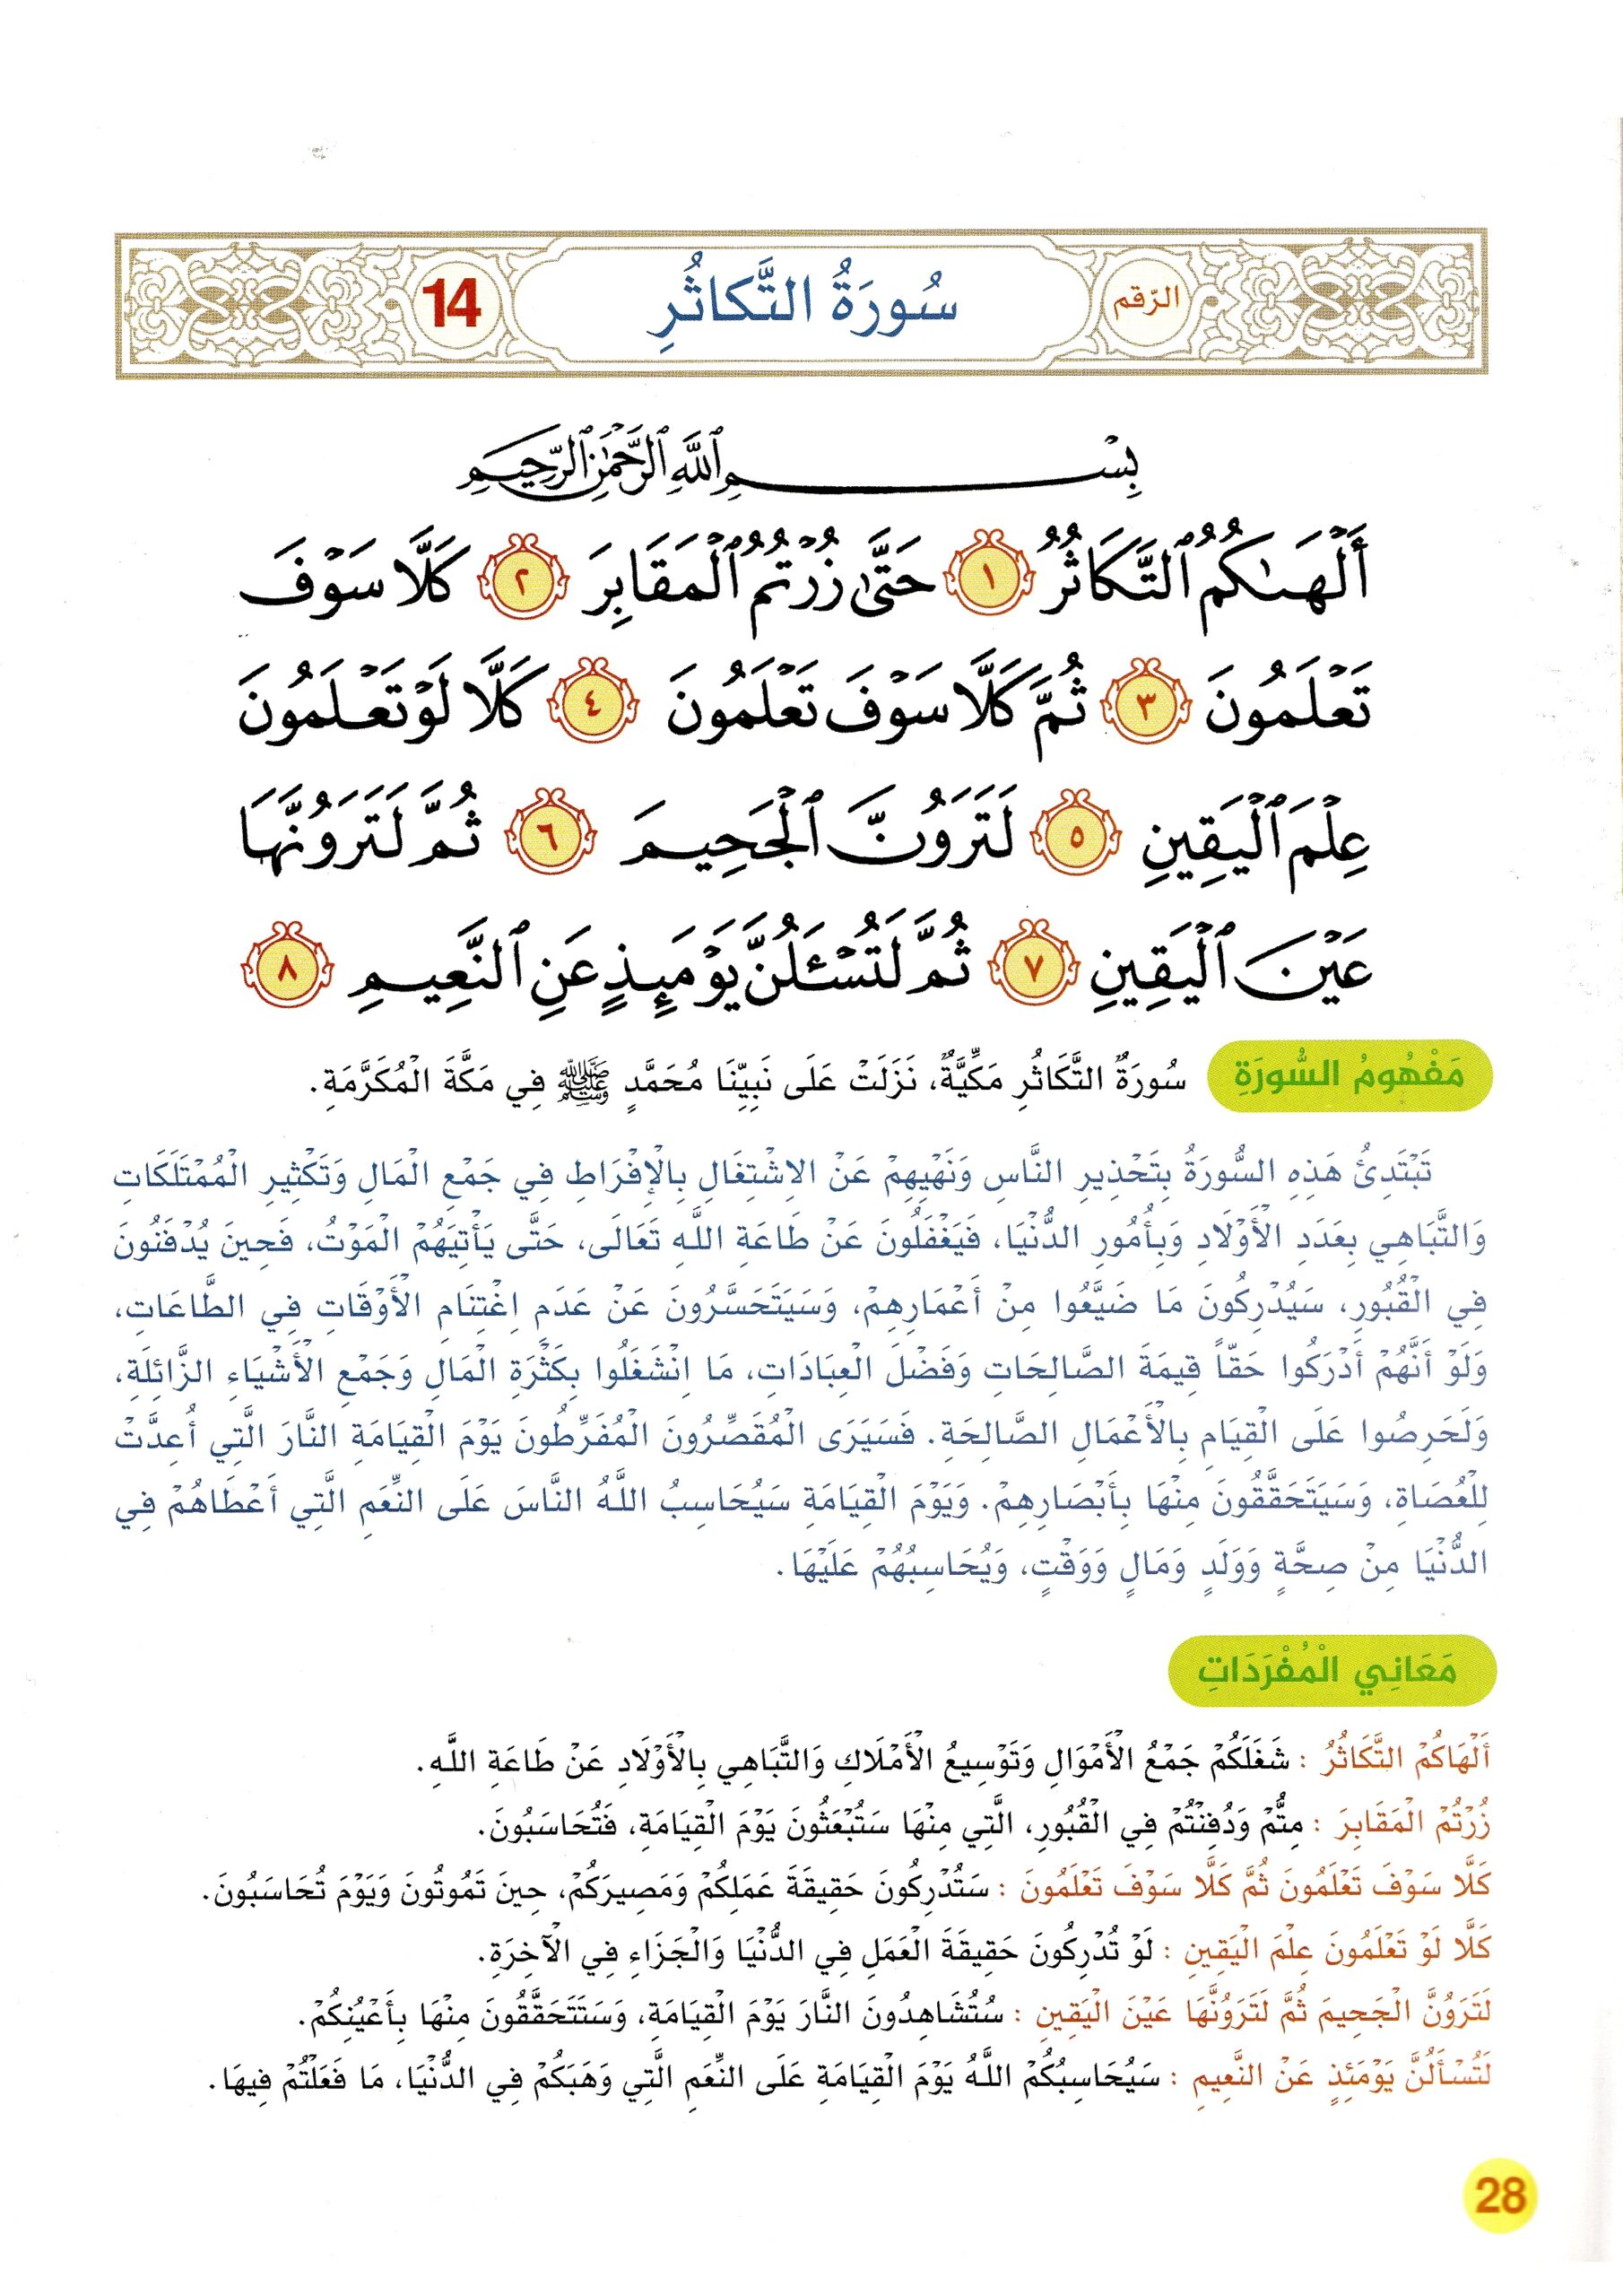 الرّقم
سُورَةُ التَّكاثُرِ
14
بِسْمِ ٱللَّهِ ٱلرَّحْمَٰنِ ٱلرَّحِيمِ
أَلْهَىٰكُمُ ٱلتَّكَاثُرُ ١ حَتَّىٰ زُرْتُمُ ٱلْمَقَابِرَ ٢ كَلَّا سَوْفَ
تَعْلَمُونَ ٣ ثُمَّ كَلَّا سَوْفَ تَعْلَمُونَ ٤ كَلَّا لَوْ تَعْلَمُونَ
عِلْمَ ٱلْيَقِينِ ٥ لَتَرَوُنَّ ٱلْجَحِيمَ ٦ ثُمَّ لَتَرَوُنَّهَا
عَيْنَ ٱلْيَقِينِ ٧ ثُمَّ لَتُسْـَٔلُنَّ يَوْمَئِذٍ عَنِ ٱلنَّعِيمِ ٨
مَفْهُومُ السُّورَةِ سُورَةُ التَّكَاثُرِ مَكِّيَّةٌ، نَزَلَتْ عَلَى نَبِيِّنَا مُحَمَّدٍ ﷺ فِي مَكَّةَ الْمُكَرَّمَةِ.
تَبْتَدِئُ هَذِهِ السُّورَةُ بِتَحْذِيرِ النَّاسِ وَنَهْيِهِمْ عَنْ الِاشْتِغَالِ بِالْإِفْرَاطِ فِي جَمْعِ الْمَالِ وَتَكْثِيرِ الْمُمْتَلَكَاتِ
وَالتَّبَاهِي بِعَدَدِ الْأَوْلَادِ وَبِأُمُورِ الدُّنْيَا، فَيَغْفَلُونَ عَنْ طَاعَةِ اللهِ تَعَالَى، حَتَّى يَأْتِيَهُمْ الْمَوْتُ، فَحِينَ يُدْفَنُونَ
فِي الْقُبُورِ، سَيُدْرِكُونَ مَا ضَيَّعُوا مِنْ أَعْمَارِهِمْ، وَسَيَتَحَسَّرُونَ عَنْ عَدَمِ اِغْتِنَامِ الْأَوْقَاتِ فِي الطَّاعَاتِ،
وَلَوْ أَنَّهُمْ أَدْرَكُوا حَقّاً قِيمَةَ الصَّالِحَاتِ وَفَضْلَ الْعِبَادَاتِ، مَا اِنْشَغَلُوا بِكَثْرَةِ الْمَالِ وَجَمْعِ الْأَشْيَاءِ الزَّائِلَةِ،
وَلَحَرِصُوا عَلَى الْقِيَامِ بِالْأَعْمَالِ الصَّالِحَةِ. فَسَيَرَى الْمُقَصِّرُونَ الْمُفَرِّطُونَ يَوْمَ الْقِيَامَةِ النَّارَ الَّتِي أُعِدَّتْ
لِلْعُصَاةِ، وَسَيَتَحَقَّقُونَ مِنْهَا بِأَبْصَارِهِمْ. وَيَوْمَ الْقِيَامَةِ سَيُحَاسِبُ اللَّهُ النَّاسَ عَلَى النِّعَمِ الَّتِي أَعْطَاهُمْ فِي
الدُّنْيَا مِنْ صِحَّةٍ وَوَلَدٍ وَمَالٍ وَوَقْتٍ، وَيُحَاسِبُهُمْ عَلَيْهَا.
مَعَانِي الْمُفْرَدَاتِ
أَلْهَاكُمْ التَّكَاثُرُ : شَغَلَكُمْ جَمْعُ الْأَمْوَالِ وَتَوْسِيعُ الْأَمْلَاكِ وَالتَّبَاهِي بِالْأَوْلَادِ عَنْ طَاعَةِ اللَّهِ.
زُرْتُمْ الْمَقَابِرَ : مِتُّمْ وَدُفِنْتُمْ فِي الْقُبُورِ، الَّتِي مِنْهَا سَتُبْعَثُونَ يَوْمَ الْقِيَامَةِ، فَتُحَاسَبُونَ.
كَلَّا سَوْفَ تَعْلَمُونَ ثُمَّ كَلَّا سَوْفَ تَعْلَمُونَ : سَتُدْرِكُونَ حَقِيقَةَ عَمَلِكُمْ وَمَصِيرَكُمْ، حِينَ تَمُوتُونَ وَيَوْمَ تُحَاسَبُونَ.
كَلَّا لَوْ تَعْلَمُونَ عِلْمَ الْيَقِينِ : لَوْ تُدْرِكُونَ حَقِيقَةَ الْعَمَلِ فِي الدُّنْيَا وَالْجَزَاءِ فِي الْآخِرَةِ.
لَتَرَوُنَّ الْجَحِيمَ ثُمَّ لَتَرَوُنَّهَا عَيْنَ الْيَقِينِ : سَتُشَاهِدُونَ النَّارَ يَوْمَ الْقِيَامَةِ، وَسَتَتَحَقَّقُونَ مِنْهَا بِأَعْيُنِكُمْ.
لَتُسْأَلُنَّ يَوْمَئِذٍ عَنْ النَّعِيمِ : سَيُحَاسِبُكُمْ اللَّهُ يَوْمَ الْقِيَامَةِ عَلَى النِّعَمِ الَّتِي وَهَبَكُمْ فِي الدُّنْيَا، مَا فَعَلْتُمْ فِيهَا.
28